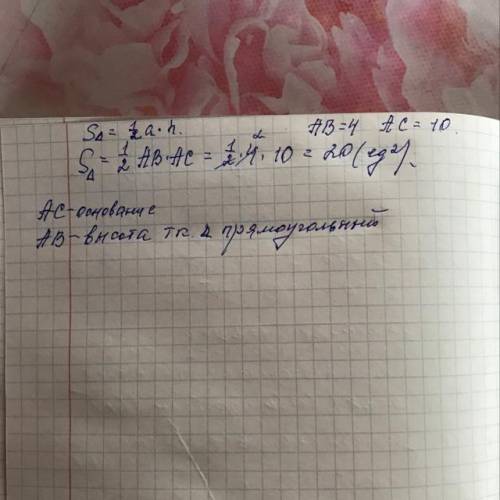 S△ = ½ a · h. AB=4 AC = 10.
S△ = ½ AB·AC = ½ · 4² · 10 = 20 (ед²).
AC-основание
AB-высота т.к. △ прямоугольный